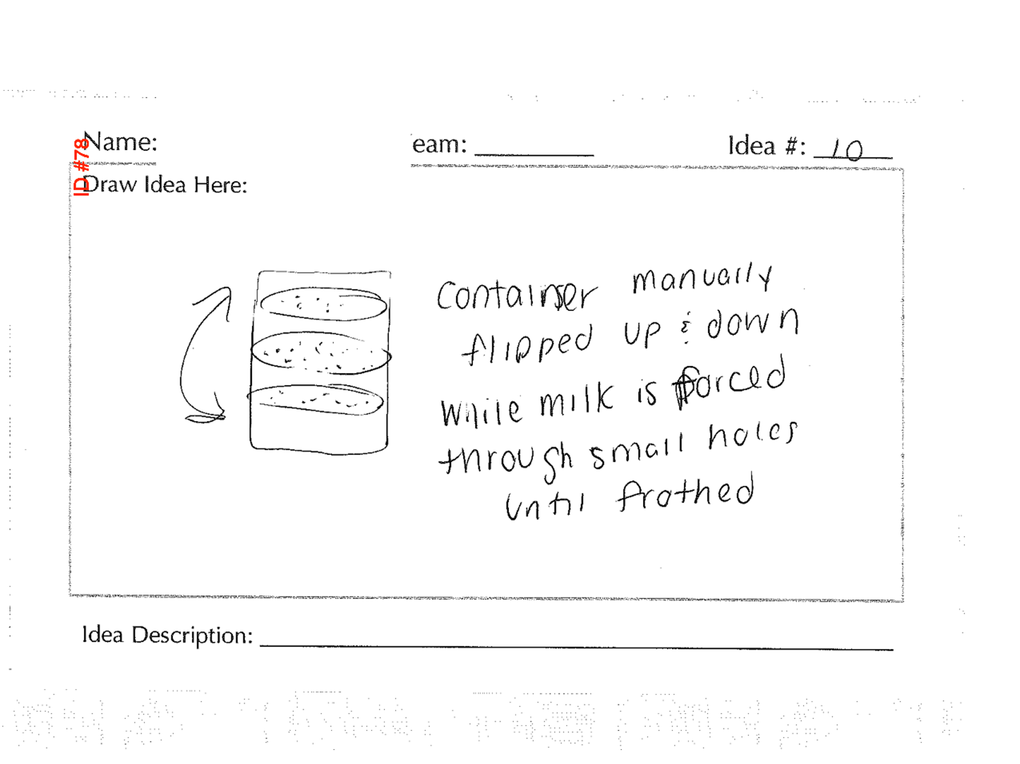 ID #78
Name:
eam:
Idea #: 10
Draw Idea Here:
Container manually
flipped up & down
while milk is forced
through small holes
until frothed
Idea Description: